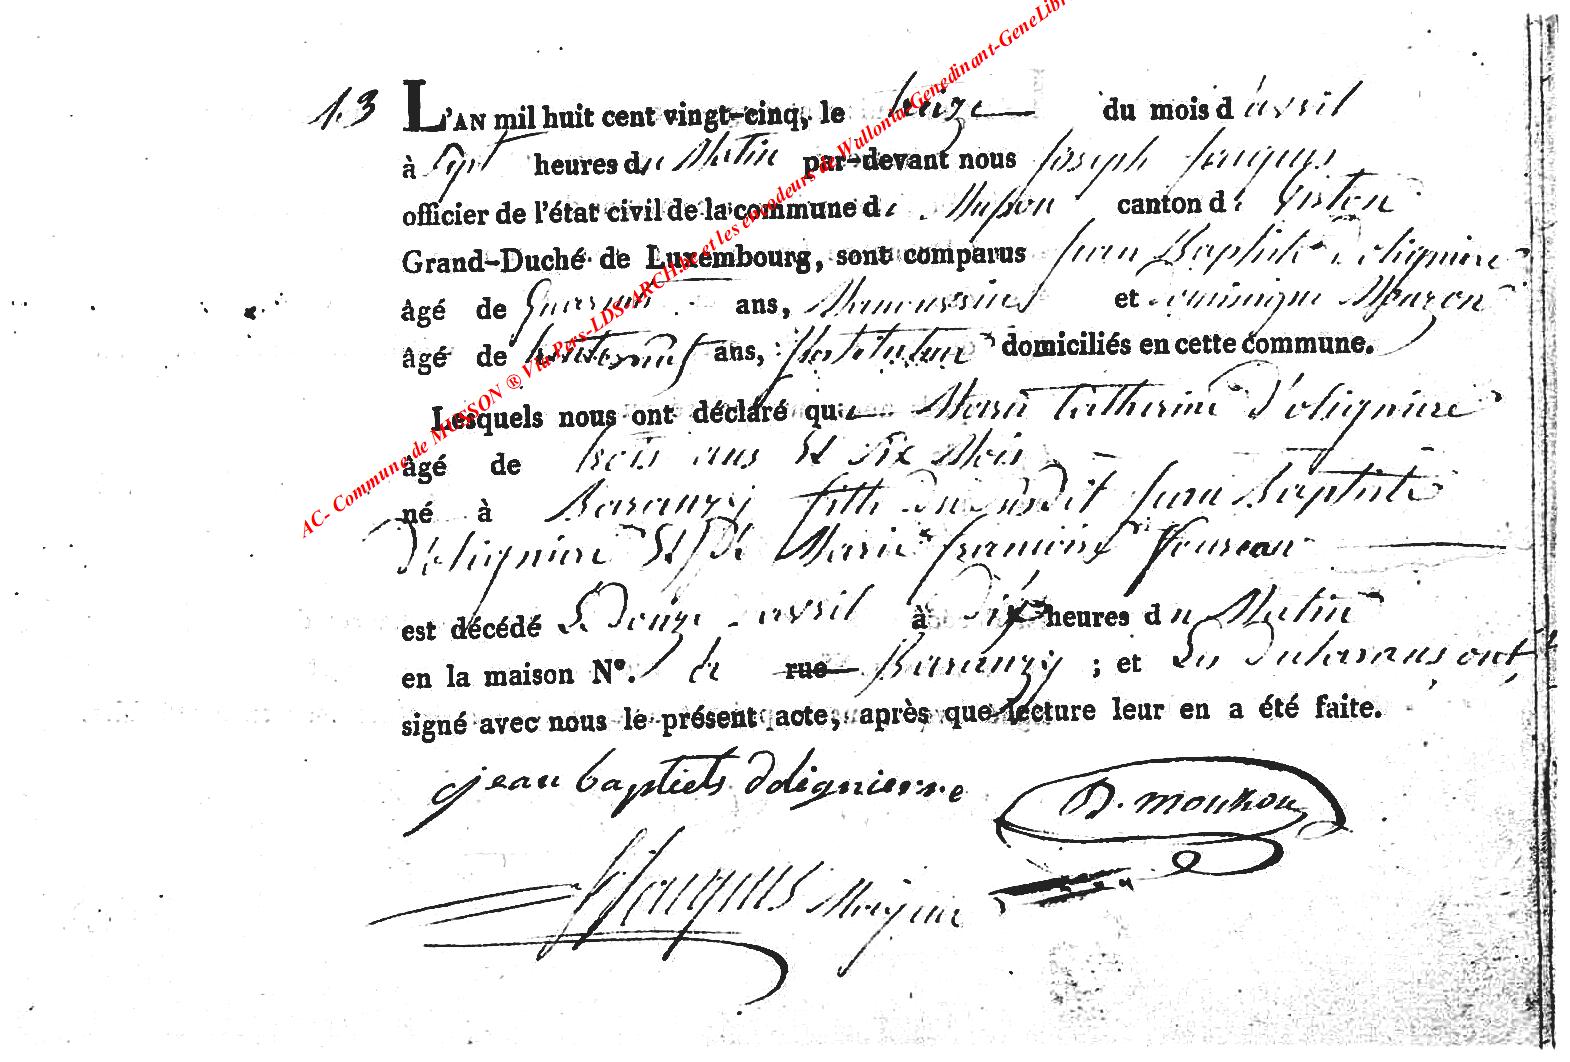 13 L'AN mil huit cent vingt-cinq, le treize du mois d'avril
à sept heures du Matin par-devant nous Joseph Jacques
officier de l'état civil de la commune de Musson canton de Virton
Grand-Duché de Luxembourg, sont comparus Jean Baptiste Dolignière
âgé de Quarante ans, et Dominique Mouzon
âgé de ans, Instituteur domiciliés en cette commune.
Lesquels nous ont déclaré que Marie Catherine D'olignière
âgé de trois ans et six Mois
né à Baranzy fille du susdit Jean Baptiste
D'olignière et de Marie françoise
est décédé le Douze avril à dix heures du Matin
en la maison N°. de rue Baranzy ; et Les Déclarans ont
signé avec nous le présent acte, après que lecture leur en a été faite.
jean baptiets dolignierre D. mouzon
Jacques
AC- Commune de MUSSON ® Via Pers-LDS-ARCH.be et les encodeurs de Wallonia-Genedinant-GeneLibr